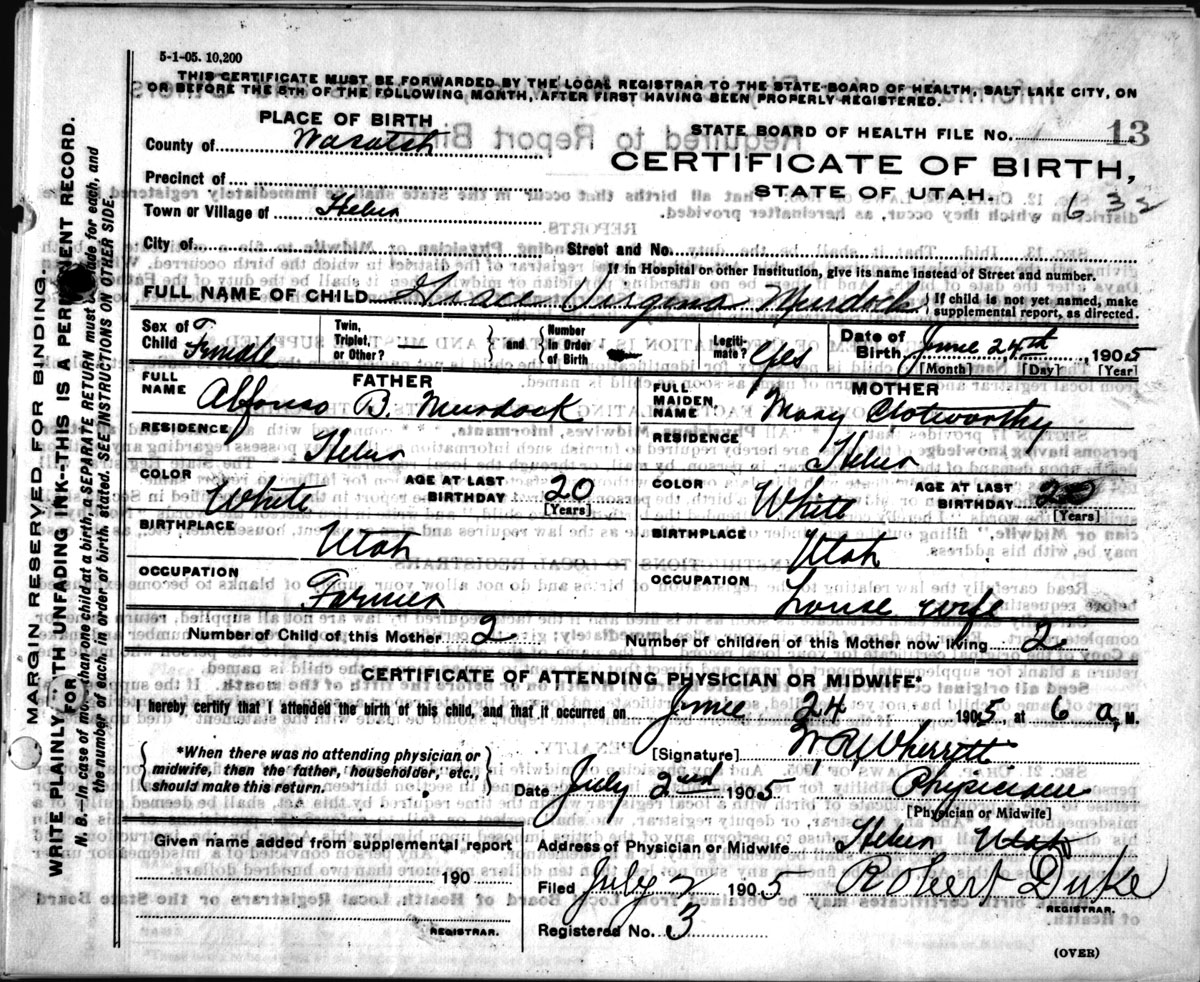 5-1-05. 10,200
THIS CERTIFICATE MUST BE FORWARDED BY THE LOCAL REGISTRAR TO THE STATE BOARD OF HEALTH, SALT LAKE CITY, ON
OR BEFORE THE 5TH OF THE FOLLOWING MONTH, AFTER FIRST HAVING BEEN PROPERLY REGISTERED.
MARGIN RESERVED FOR BINDING.
WRITE PLAINLY WITH UNFADING INK--THIS IS A PERMANENT RECORD.
N. B.--In case of more than one child at a birth, a SEPARATE RETURN must be made for each, and
the number of each, in order of birth, stated. SEE INSTRUCTIONS ON OTHER SIDE.
PLACE OF BIRTH
County of Wasatch
Precinct of
Town or Village of Heber
City of
STATE BOARD OF HEALTH FILE NO. 13
CERTIFICATE OF BIRTH,
STATE OF UTAH.
632
Street and No.
If in Hospital or other Institution, give its name instead of Street and number.
FULL NAME OF CHILD Grace Virginia Murdock { If child is not yet named, make
supplemental report, as directed.
Sex of Child Female
Twin, Triplet, or Other? and Number in Order of Birth
Legitimate? Yes
Date of Birth, June 24th, 1905
[Month] [Day] [Year]
FATHER
FULL NAME Alfonso B. Murdock
RESIDENCE Heber
COLOR White AGE AT LAST BIRTHDAY 20 [Years]
BIRTHPLACE Utah
OCCUPATION Farmer
MOTHER
FULL MAIDEN NAME Mary Clotworthy
RESIDENCE Heber
COLOR White AGE AT LAST BIRTHDAY 20 [Years]
BIRTHPLACE Utah
OCCUPATION House wife
Number of Child of this Mother 2 Number of children of this Mother now living 2
CERTIFICATE OF ATTENDING PHYSICIAN OR MIDWIFE*
I hereby certify that I attended the birth of this child, and that it occurred on June 24 1905, at 6 a, M.
*When there was no attending physician or
midwife, then the father, householder, etc.,
should make this return.
[Signature] W R Wherritt
Date July 2nd 1905 Physician
[Physician or Midwife]
Given name added from supplemental report
190
REGISTRAR.
Address of Physician or Midwife Heber Utah
Filed July 2 1905 Robert Duke
REGISTRAR.
Registered No. 3
(OVER)